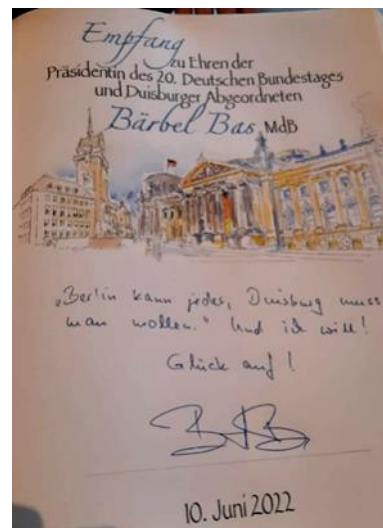 Empfang
zu Ehren der
Präsidentin des 20. Deutschen Bundestages
und Duisburger Abgeordneten
Bärbel Bas, MdB
„Berlin kann jeder, Duisburg muss
man wollen." Und ich will!
Glück auf!
10. Juni 2022